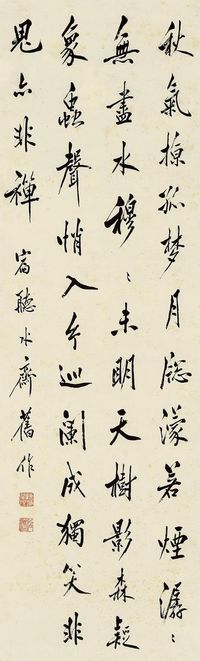 秋氣掠孤梦月牎濛若煙潺〻
無盡水穆〻未明天樹影森疑
象蟲聲悄入巡闌成獨笑非
鬼亦非禪 宿聽水齋舊作